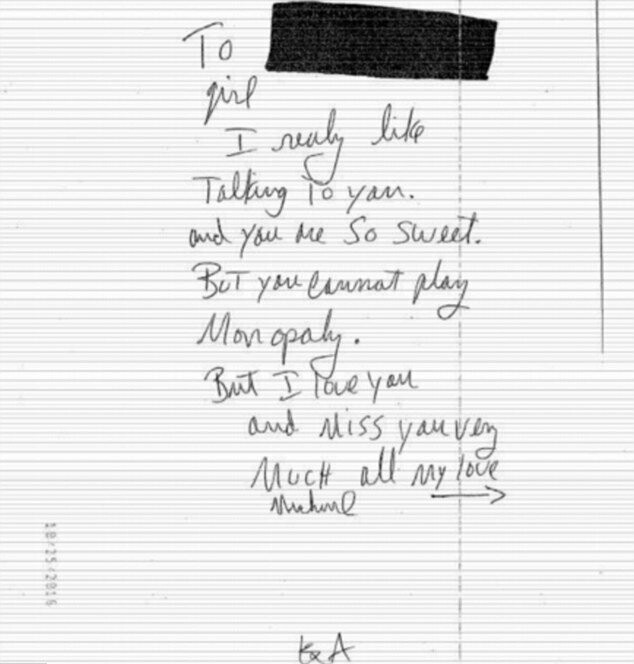 To
girl
I realy like
Talking To you.
and you are so sweet.
But you cannot play
Monopaly.
But I love you
and Miss you very
Much all my love
Michael
10/25/2016